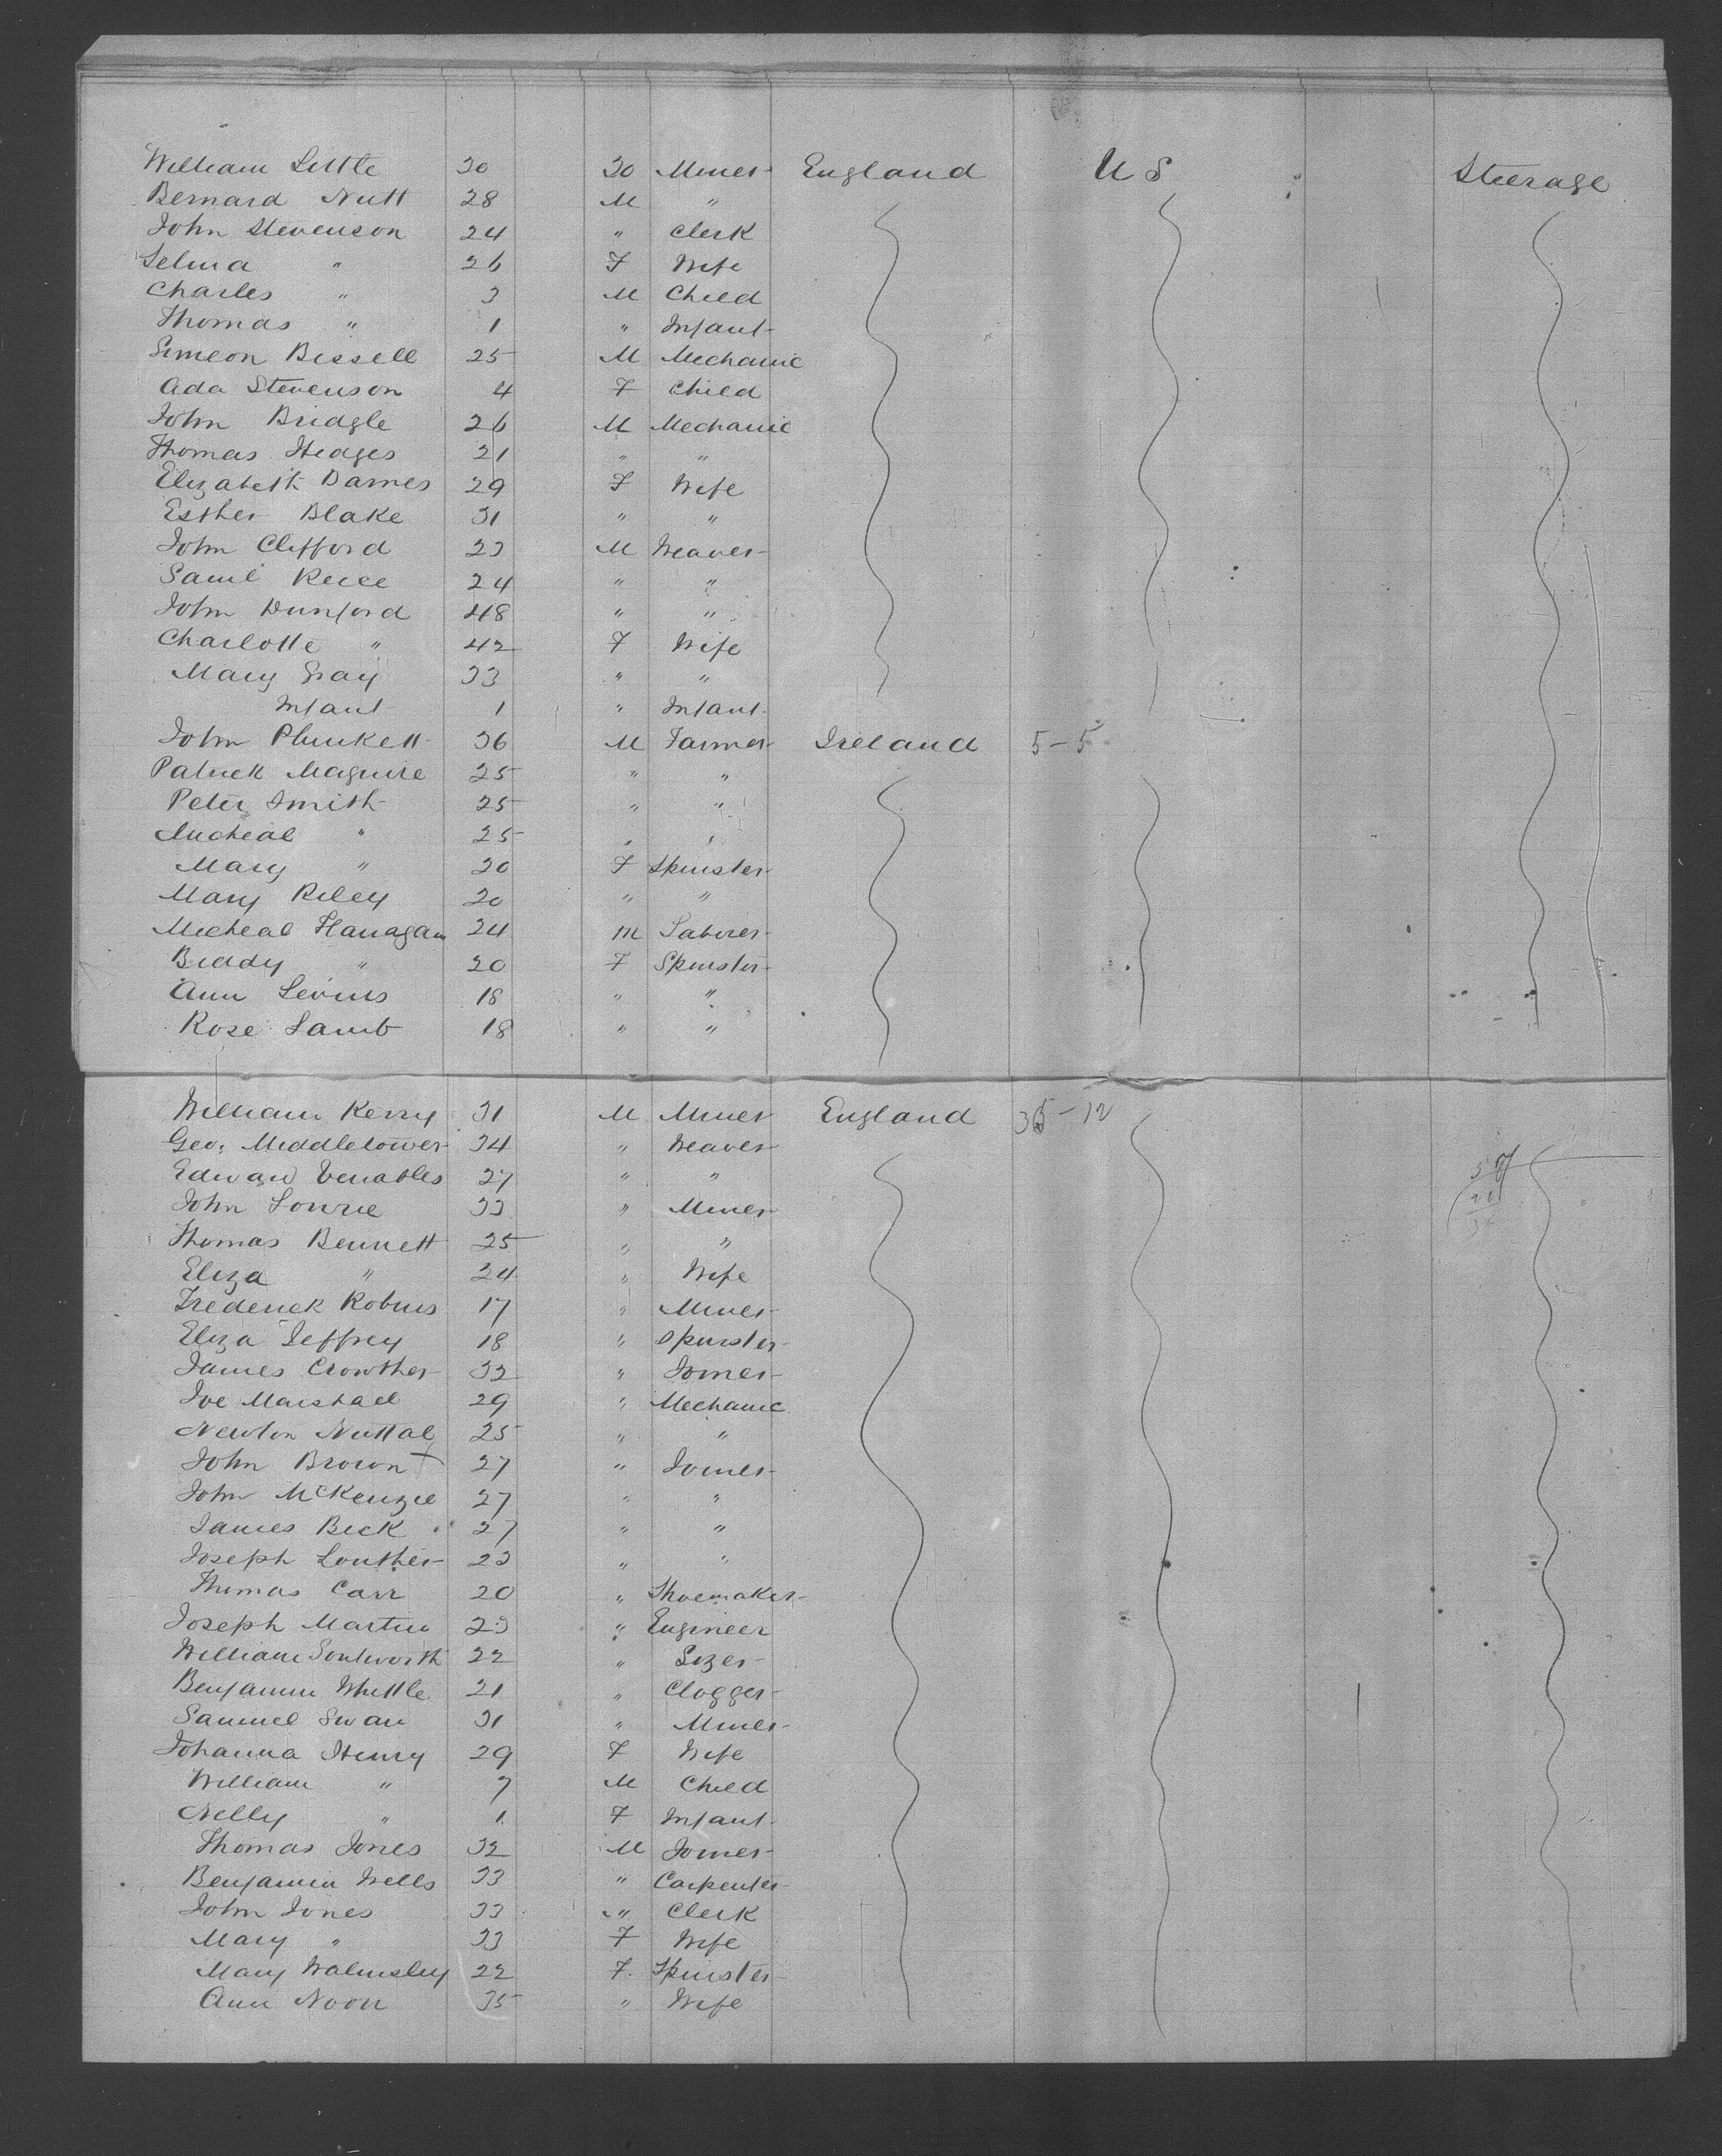 William Little 30 30 Miner England U S Steerage
Bernard Nutt 28 M "
John Stevenson 24 " Clerk
Selma " 26 F Wife
Charles " 3 M Child
Thomas " 1 " Infant
Simeon Bissell 25 M Mechanic
Ada Stevenson 4 F Child
John Bridgle 26 M Mechanic
Thomas Hedges 21 " "
Elizabeth Barnes 29 F Wife
Esther Blake 31 " "
John Clifford 23 M Weaver
Saml Reece 24 " "
John Dunford 48 " "
Charlotte " 42 F Wife
Mary Gray 33 " "
Infant 1 " Infant
John Plunkett 36 M Farmer Ireland 5-5
Patrick Maguire 25 " "
Peter Smith 25 " "
Micheal " 25 " "
Mary " 20 F Spinster
Mary Riley 20 " "
Micheal Flanagan 24 M Laborer
Biddy " 20 F Spinster
Ann Levins 18 " "
Rose Lamb 18 " "
William Kerry 31 M Miner England
Geo: Middletower 34 " Weaver
Edward Venables 27 " "
John Lowrie 33 " Miner
Thomas Bennett 25 " "
Eliza " 24 " Wife
Frederick Robins 17 " Miner
Eliza Jeffrey 18 " Spinster
James Crowther 32 " Joiner
Joe Marshael 29 " Mechanic
Newton Nuttal 25 " "
John Brown 27 " Joiner
John McKenzie 27 " "
James Beck 27 " "
Joseph Louther 23 " "
Thomas Carr 20 " Shoemaker
Joseph Martin 23 " Engineer
William Southworth 22 " Sizer
Benjamin Whittle 21 " Clogger
Samuel Swan 31 " Miner
Johanna Henry 29 F Wife
William " 7 M Child
Nelly " 1 F Infant
Thomas Jones 32 M Joiner
Benjamin Wells 33 " Carpenter
John Jones 33 " Clerk
Mary " 33 F Wife
Mary Walmsley 22 F. Spinster
Ann Noon 35 " Wife